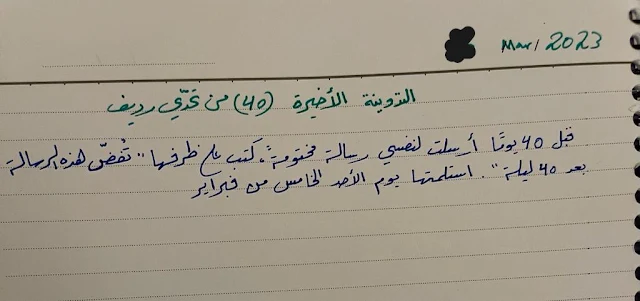 Mar/2023
التدوينة الأخيرة (40) من تحدّي رديف
قبل 40 يومًا أرسلت لنفسي رسالة مختومة، كتب على ظرفها "تُفضّ هذه الرسالة
بعد 40 ليلة". استلمتها يوم الأحد الخامس من فبراير